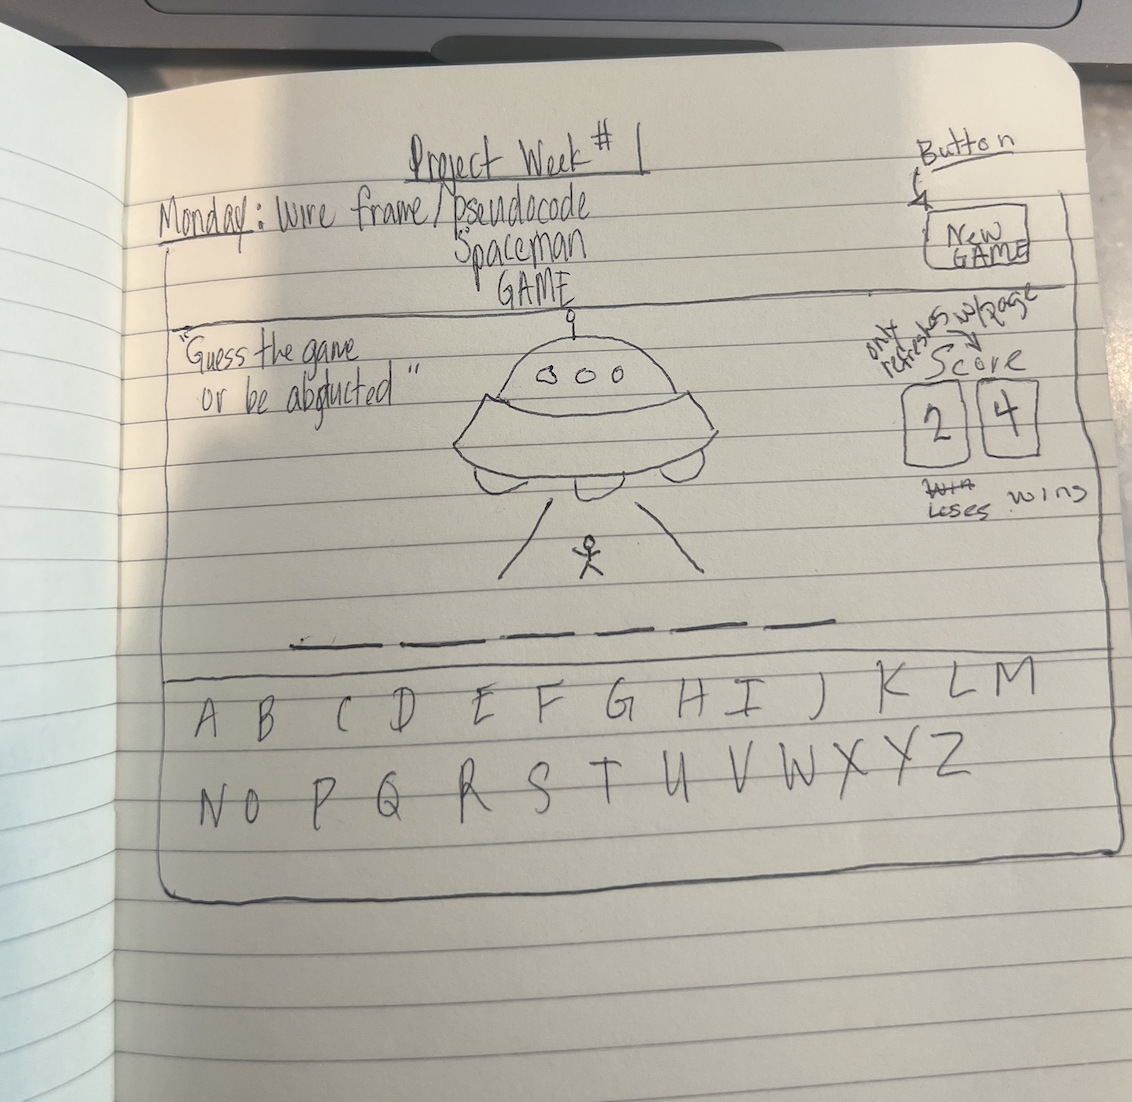 Project Week #1
Button
Monday: Wire frame/pseudocode
"Spaceman
GAME
NEW
GAME
"Guess the game
or be abducted"
only
refreshes w/page
Score
2 4
Win
Loses wins
A B C D E F G H I J K L M
N O P Q R S T U V W X Y Z